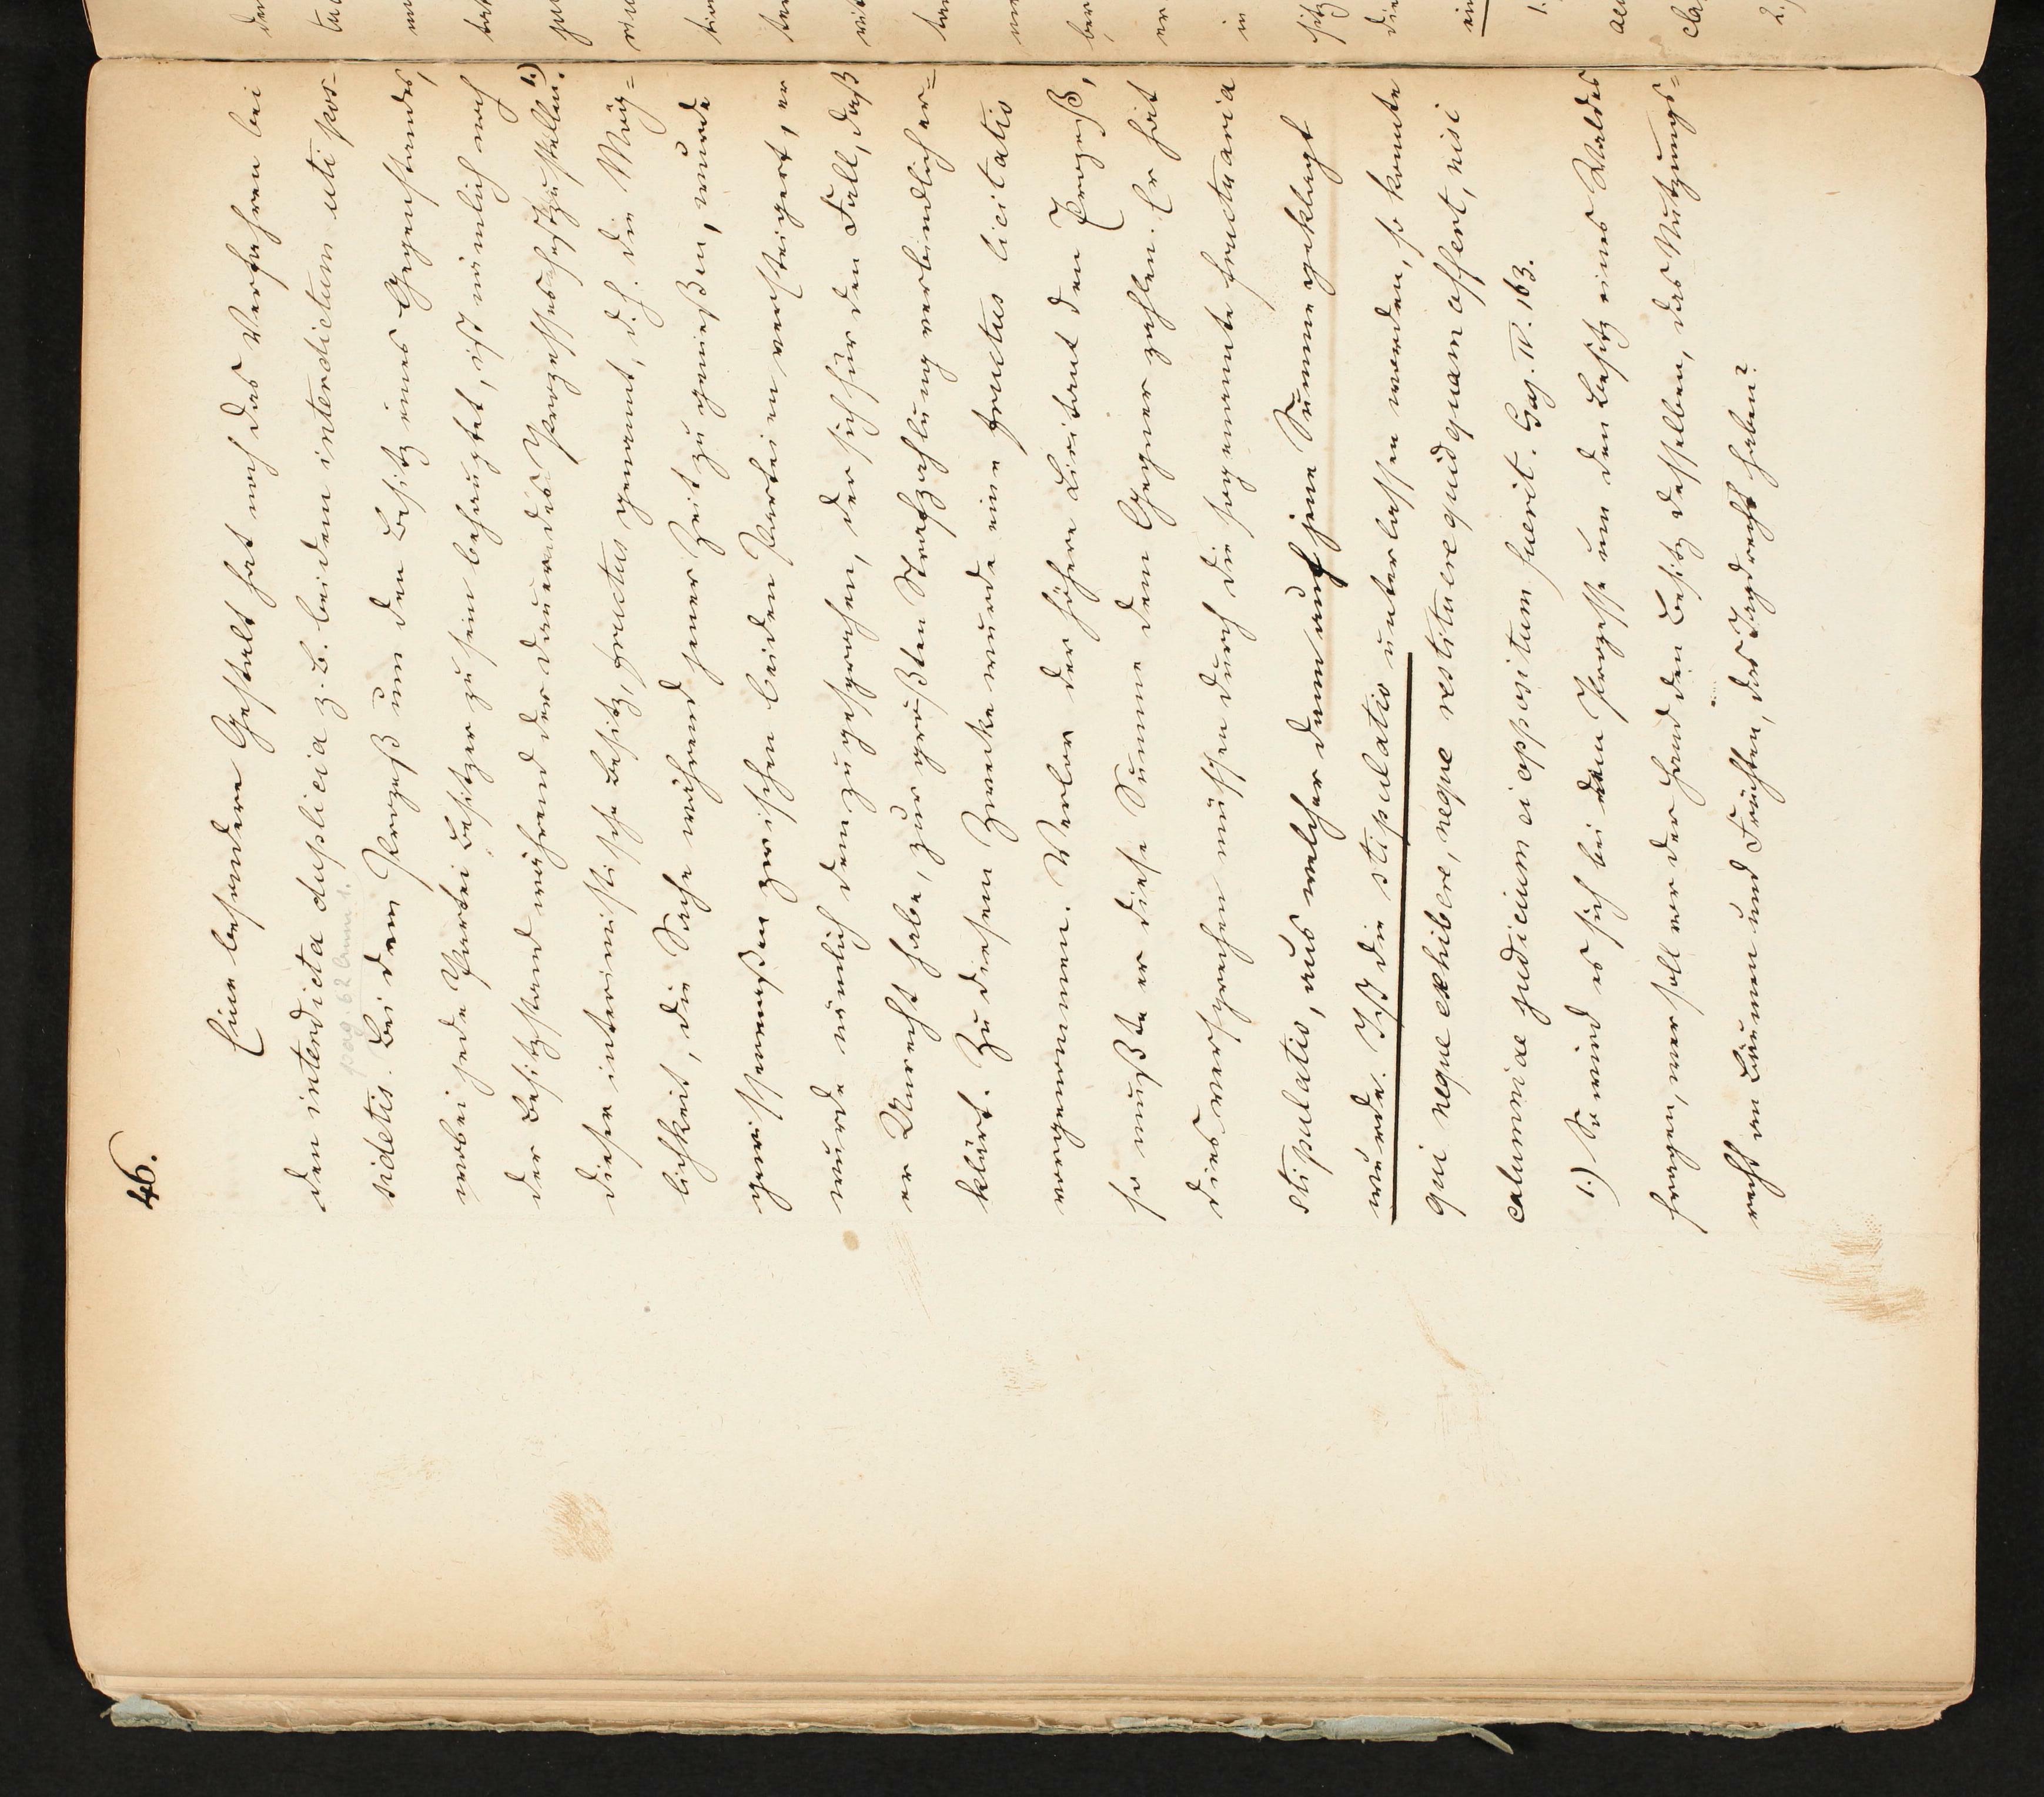 46.
Eine besondere Gestalt hat noch das Verfahren bei
den interdicta duplicia z. B. bei dem interdictum uti pos-
pag. 62 Anm. 1.
sidetis. Bei dem Prozeß um den Besitz eines Gegenstandes,
wobei jede Partei Besitzer zu sein behauptet, ist nämlich noch
der Besitzstand während der Dauer des Prozesses festzustellen. 1.)
Dieser interimistische Besitz, fructus genannt, d. h. die Mög=
lichkeit, die Sache während jener Zeit zu genießen, wurde
gewissermaßen zwischen beiden Parteien versteigert, er
wurde nämlich dem zugesprochen, der sich für den Fall, daß
er Unrecht habe, zur größten Strafzahlung verbindlich er=
klärt. Zu diesem Zwecke wurde eine fructus licitatio
vorgenommen. Verlor der höhere Licitant den Prozeß,
so mußte er diese Summe dem Gegner zahlen. Er hat
dies versprechen müssen durch die sogenannte fructuaria
stipulatio, aus welcher dann auf jene Summe geklagt
wurde. Ist die stipulatio unterlassen worden, so konnte
qui neque exhibere, neque restituere quidquam offert, nisi
calumniae judicium ei oppositum fuerit. Gaj. IV. 163.
1.) So wird es sich bei dem Prozesse um den Besitz eines Waldes
fragen, wer soll vor der Hand den Besitz desselben, das Nutzungs=
recht an Bäumen und Früchten, das Jagdrecht haben?